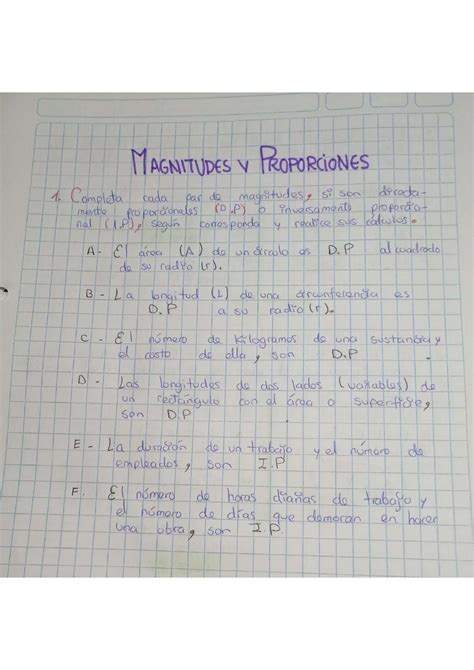 MAGNITUDES Y PROPORCIONES
1. Completa cada par de magnitudes, si son directa-
mente proporcionales (D.P) o inversamente proporcio-
nal (I.P), según corresponda y realice sus cálculos.
A- El área (A) de un círculo es D.P al cuadrado
de su radio (r).
B- La longitud (L) de una circunferencia es
D.P a su radio (r).
C- El número de kilogramos de una sustancia y
el costo de ella, son D.P
D- Las longitudes de dos lados (variables) de
un rectángulo con el área o superficie,
son D.P
E- La duración de un trabajo y el número de
empleados, son I.P
F. El número de horas diarias de trabajo y
el número de días que demoran en hacer
una obra, son I.P